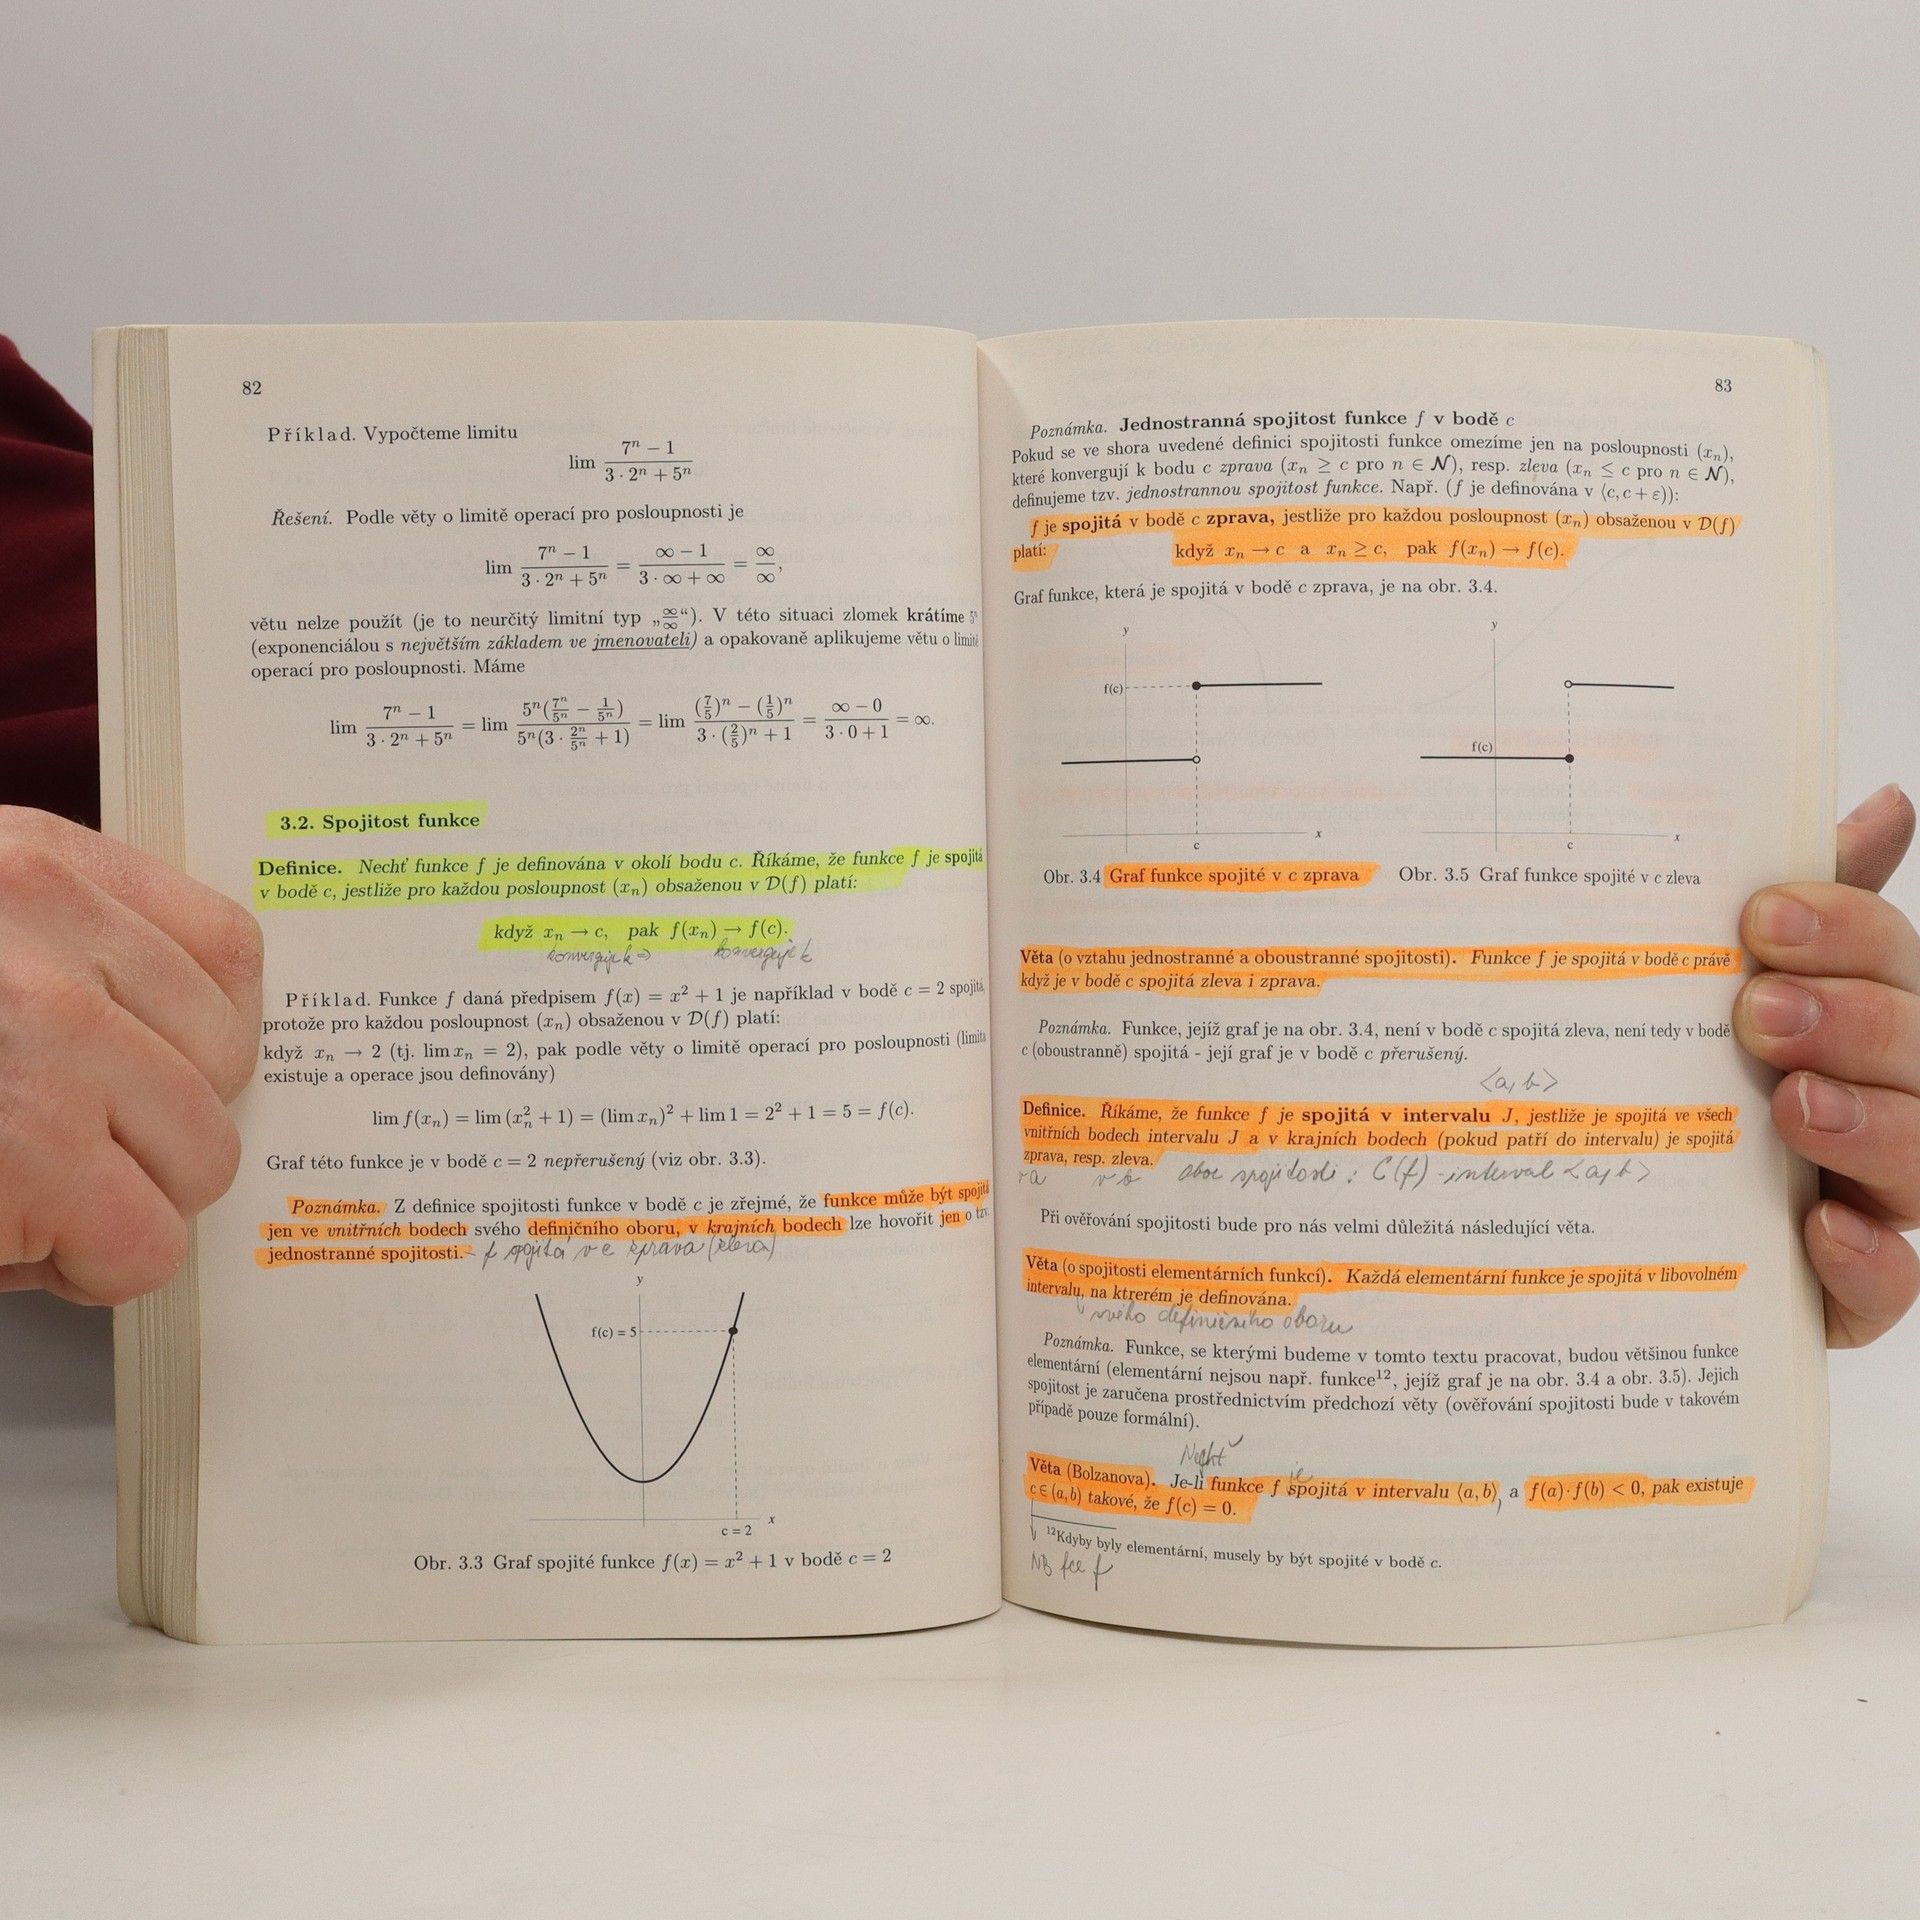 82
Příklad. Vypočteme limitu
lim (7ⁿ − 1)/(3 · 2ⁿ + 5ⁿ)
Řešení. Podle věty o limitě operací pro posloupnosti je
lim (7ⁿ − 1)/(3 · 2ⁿ + 5ⁿ) = (∞ − 1)/(3 · ∞ + ∞) = ∞/∞,
větu nelze použít (je to neurčitý limitní typ „∞/∞“). V této situaci zlomek krátíme 5ⁿ
(exponenciálou s největším základem ve jmenovateli) a opakovaně aplikujeme větu o limitě
operací pro posloupnosti. Máme
lim (7ⁿ − 1)/(3 · 2ⁿ + 5ⁿ) = lim 5ⁿ(7ⁿ/5ⁿ − 1/5ⁿ)/5ⁿ(3 · 2ⁿ/5ⁿ + 1) = lim ((7/5)ⁿ − (1/5)ⁿ)/(3 · (2/5)ⁿ + 1) = (∞ − 0)/(3 · 0 + 1) = ∞.
3.2. Spojitost funkce
Definice. Nechť funkce f je definována v okolí bodu c. Říkáme, že funkce f je spojitá
v bodě c, jestliže pro každou posloupnost (xₙ) obsaženou v D(f) platí:
když xₙ → c, pak f(xₙ) → f(c).
konverguje k ⇒ konverguje k
Příklad. Funkce f daná předpisem f(x) = x² + 1 je například v bodě c = 2 spojitá,
protože pro každou posloupnost (xₙ) obsaženou v D(f) platí:
když xₙ → 2 (tj. lim xₙ = 2), pak podle věty o limitě operací pro posloupnosti (limita
existuje a operace jsou definovány)
lim f(xₙ) = lim (xₙ² + 1) = (lim xₙ)² + lim 1 = 2² + 1 = 5 = f(c).
Graf této funkce je v bodě c = 2 nepřerušený (viz obr. 3.3).
Poznámka. Z definice spojitosti funkce v bodě c je zřejmé, že funkce může být spojitá
jen ve vnitřních bodech svého definičního oboru, v krajních bodech lze hovořit jen o tzv.
jednostranné spojitosti. – f spojitá v c zprava (zleva)
y
f(c) = 5
c = 2
x
Obr. 3.3 Graf spojité funkce f(x) = x² + 1 v bodě c = 2
83
Poznámka. Jednostranná spojitost funkce f v bodě c
Pokud se ve shora uvedené definici spojitosti funkce omezíme jen na posloupnosti (xₙ),
které konvergují k bodu c zprava (xₙ ≥ c pro n ∈ N), resp. zleva (xₙ ≤ c pro n ∈ N),
definujeme tzv. jednostrannou spojitost funkce. Např. (f je definována v ⟨c, c + ε)):
f je spojitá v bodě c zprava, jestliže pro každou posloupnost (xₙ) obsaženou v D(f)
platí: když xₙ → c a xₙ ≥ c, pak f(xₙ) → f(c).
Graf funkce, která je spojitá v bodě c zprava, je na obr. 3.4.
y
f(c)
x
c
y
f(c)
x
c
Obr. 3.4 Graf funkce spojité v c zprava
Obr. 3.5 Graf funkce spojité v c zleva
Věta (o vztahu jednostranné a oboustranné spojitosti). Funkce f je spojitá v bodě c právě
když je v bodě c spojitá zleva i zprava.
Poznámka. Funkce, jejíž graf je na obr. 3.4, není v bodě c spojitá zleva, není tedy v bodě
c (oboustranně) spojitá - její graf je v bodě c přerušený.
<a, b>
Definice. Říkáme, že funkce f je spojitá v intervalu J, jestliže je spojitá ve všech
vnitřních bodech intervalu J a v krajních bodech (pokud patří do intervalu) je spojitá
zprava, resp. zleva.
v a v b obor spojitosti : C(f) - interval <a, b>
Při ověřování spojitosti bude pro nás velmi důležitá následující věta.
Věta (o spojitosti elementárních funkcí). Každá elementární funkce je spojitá v libovolném
intervalu, na ktrerém je definována.
svého definičního oboru
Poznámka. Funkce, se kterými budeme v tomto textu pracovat, budou většinou funkce
elementární (elementární nejsou např. funkce¹², jejíž graf je na obr. 3.4 a obr. 3.5). Jejich
spojitost je zaručena prostřednictvím předchozí věty (ověřování spojitosti bude v takovém
případě pouze formální).
Nechť je
Věta (Bolzanova). Je-li funkce f spojitá v intervalu ⟨a, b⟩, a f(a) · f(b) < 0, pak existuje
c ∈ (a, b) takové, že f(c) = 0.
¹²Kdyby byly elementární, musely by být spojité v bodě c.
NB fce f